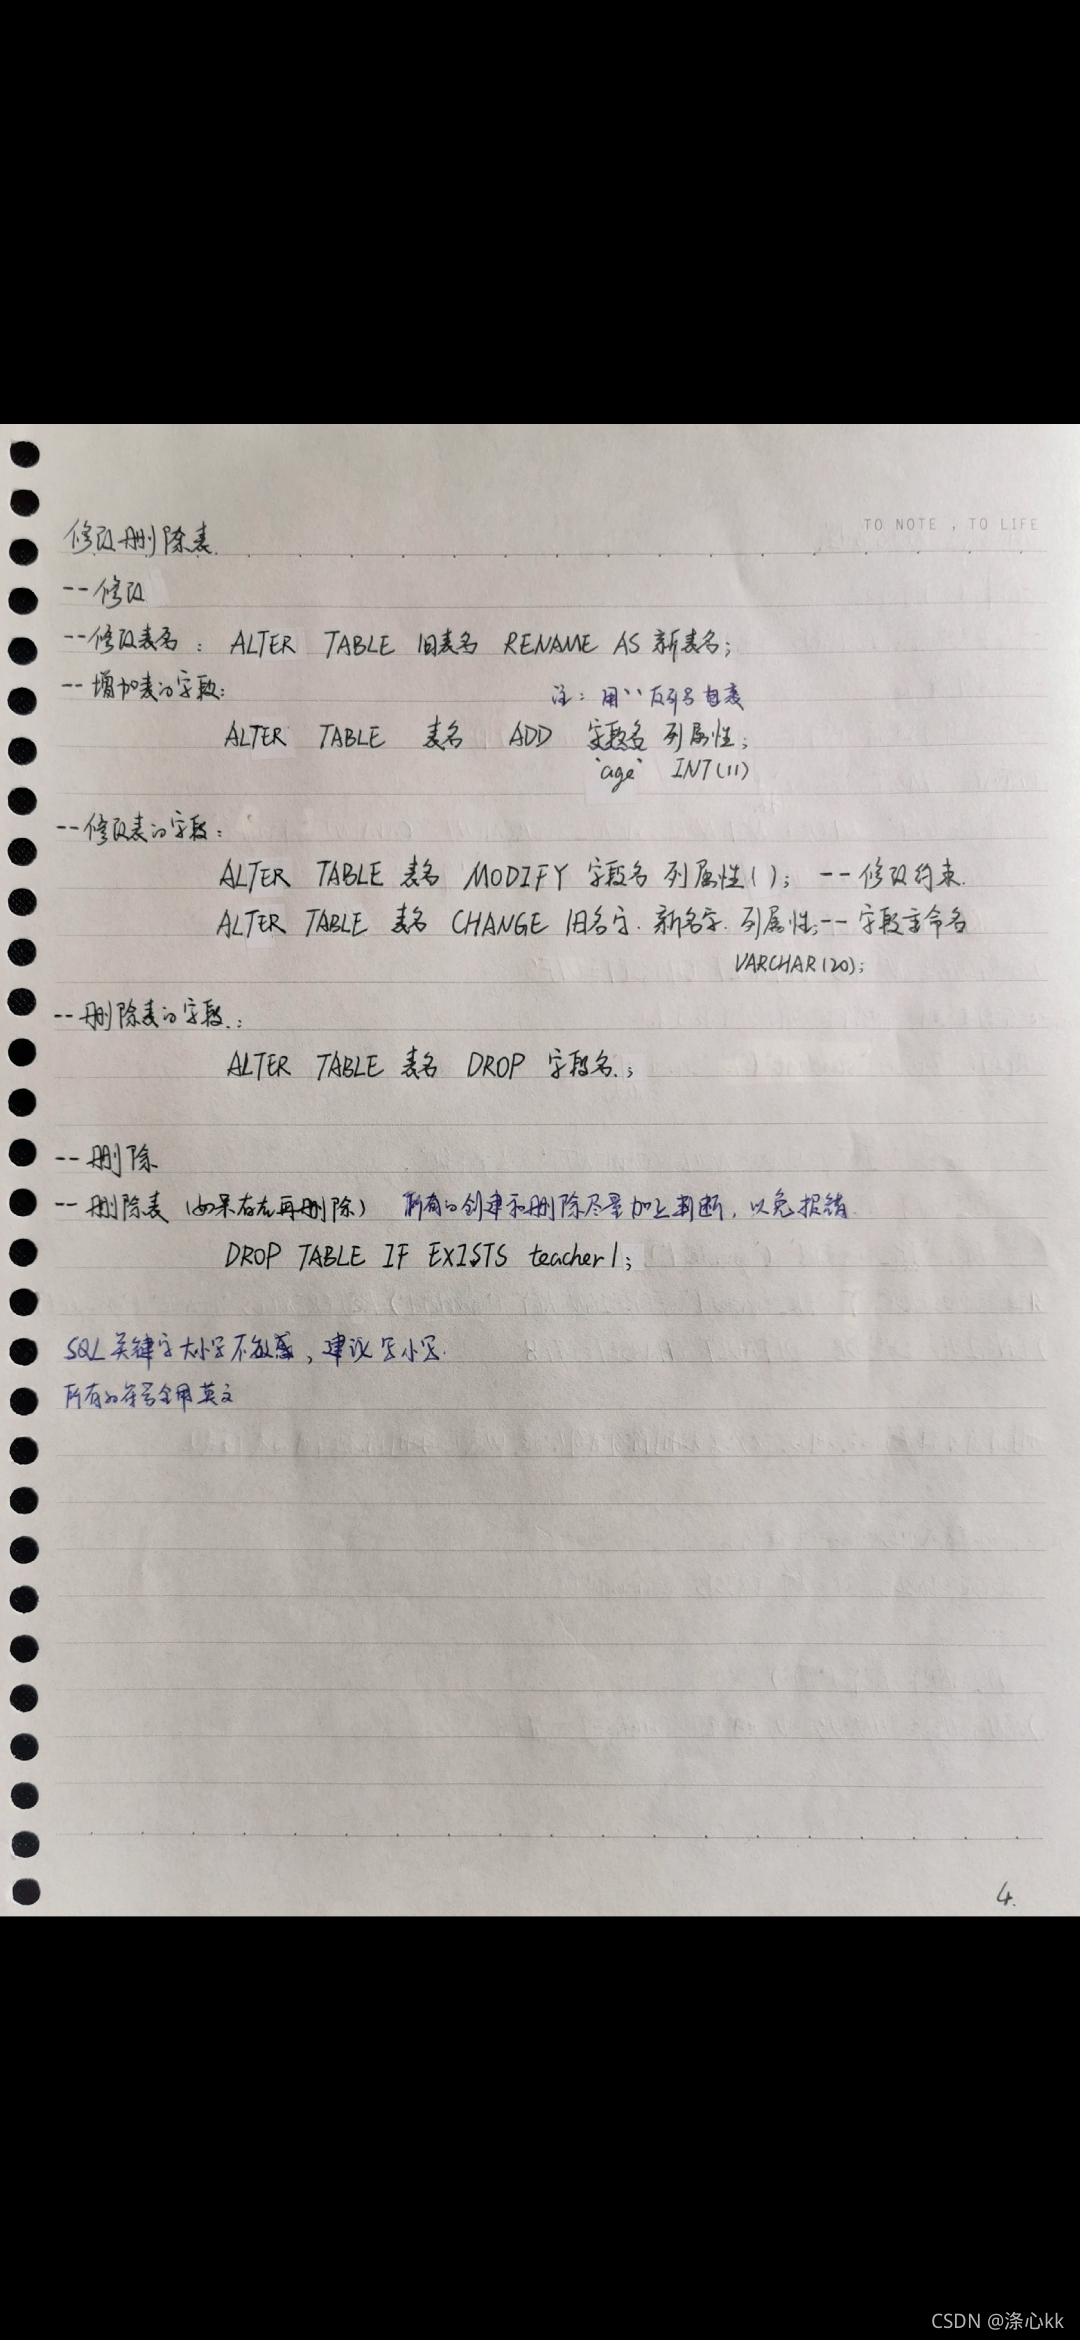 TO NOTE , TO LIFE
修改删除表
--修改
--修改表名：ALTER TABLE 旧表名 RENAME AS 新表名;
--增加表的字段：
注：用``反引号包裹
ALTER TABLE 表名 ADD 字段名 列属性;
`age` INT(11)
--修改表的字段：
ALTER TABLE 表名 MODIFY 字段名 列属性(); --修改约束.
ALTER TABLE 表名 CHANGE 旧名字. 新名字. 列属性;--字段重命名
VARCHAR(20);
--删除表的字段.：
ALTER TABLE 表名 DROP 字段名.;
--删除
--删除表（如果存在再删除） 所有的创建和删除尽量加上判断，以免报错.
DROP TABLE IF EXISTS teacher1;
SQL关键字大小写不敏感，建议写小写.
所有的符号全用英文
4.
CSDN @涤心kk